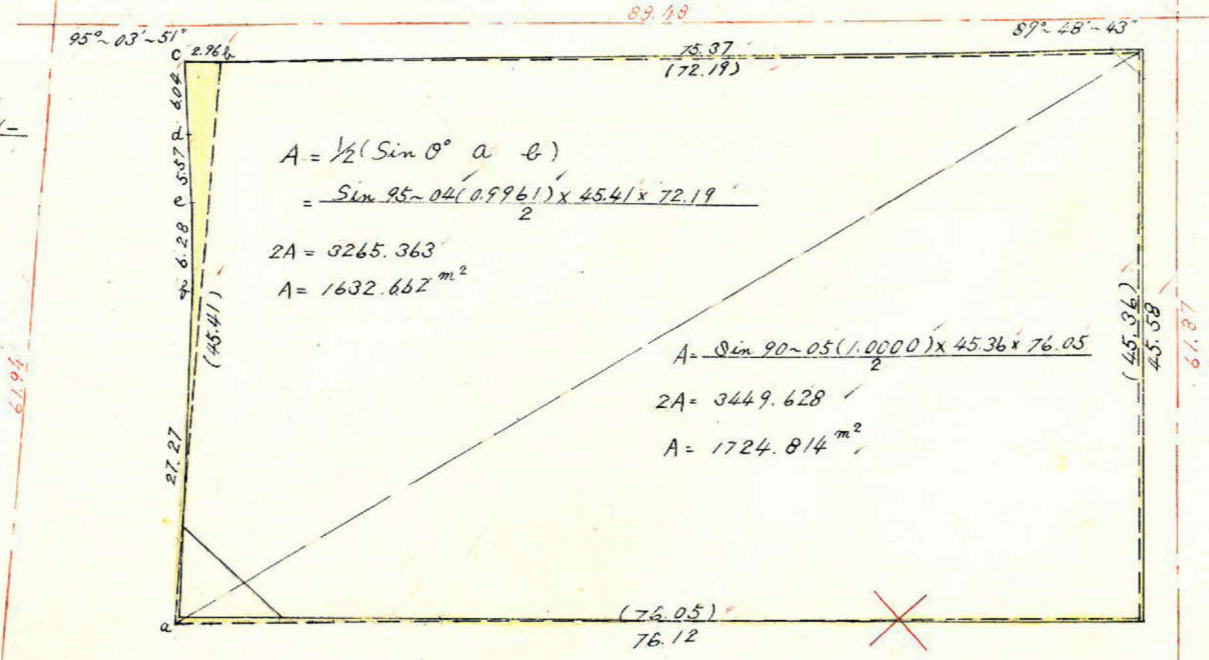 89.48
95°~03'~51"
89°~48'~43"
c 2.96 b
75.37
(72.19)
6.04
d
5.57
e
6.28
(45.41)
27.27
a
61.94
A = ½(Sin θ° a b)
= Sin 95~04(0.9961) × 45.41 × 72.19
2
2A = 3265.363
A = 1632.682 m²
A = Sin 90~05(1.0000) × 45.36 × 76.05
2
2A = 3449.628
A = 1724.814 m²
(45.36)
45.58
61.87
(76.05)
76.12